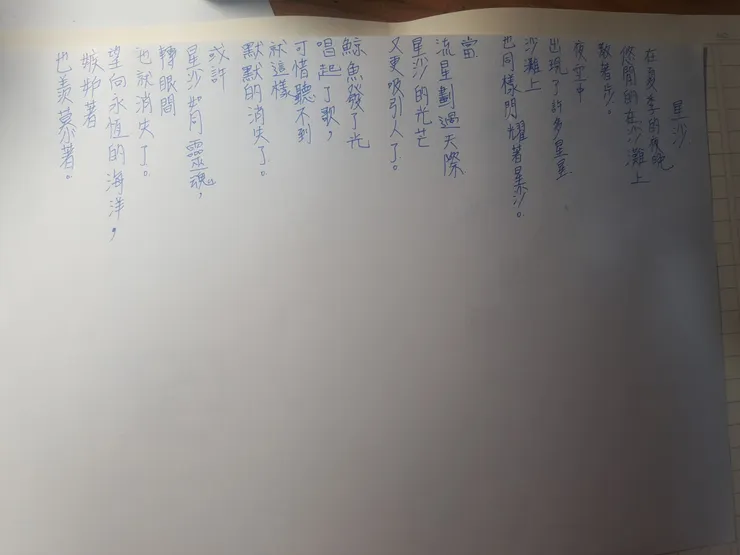 星沙
在夏季的夜晚
悠閒的在沙灘上
散著步。
夜空中
出現了許多星星
沙灘上
也同樣閃耀著星沙。
當
流星劃過天際
星沙的光芒
又更吸引人了。
鯨魚發了光
唱起了歌,
可惜聽不到
就這樣
默默的消失了。
或許
星沙如有靈魂,
轉眼間
也就消失了。
望向永恆的海洋,
嫉妒著
也羨慕著。